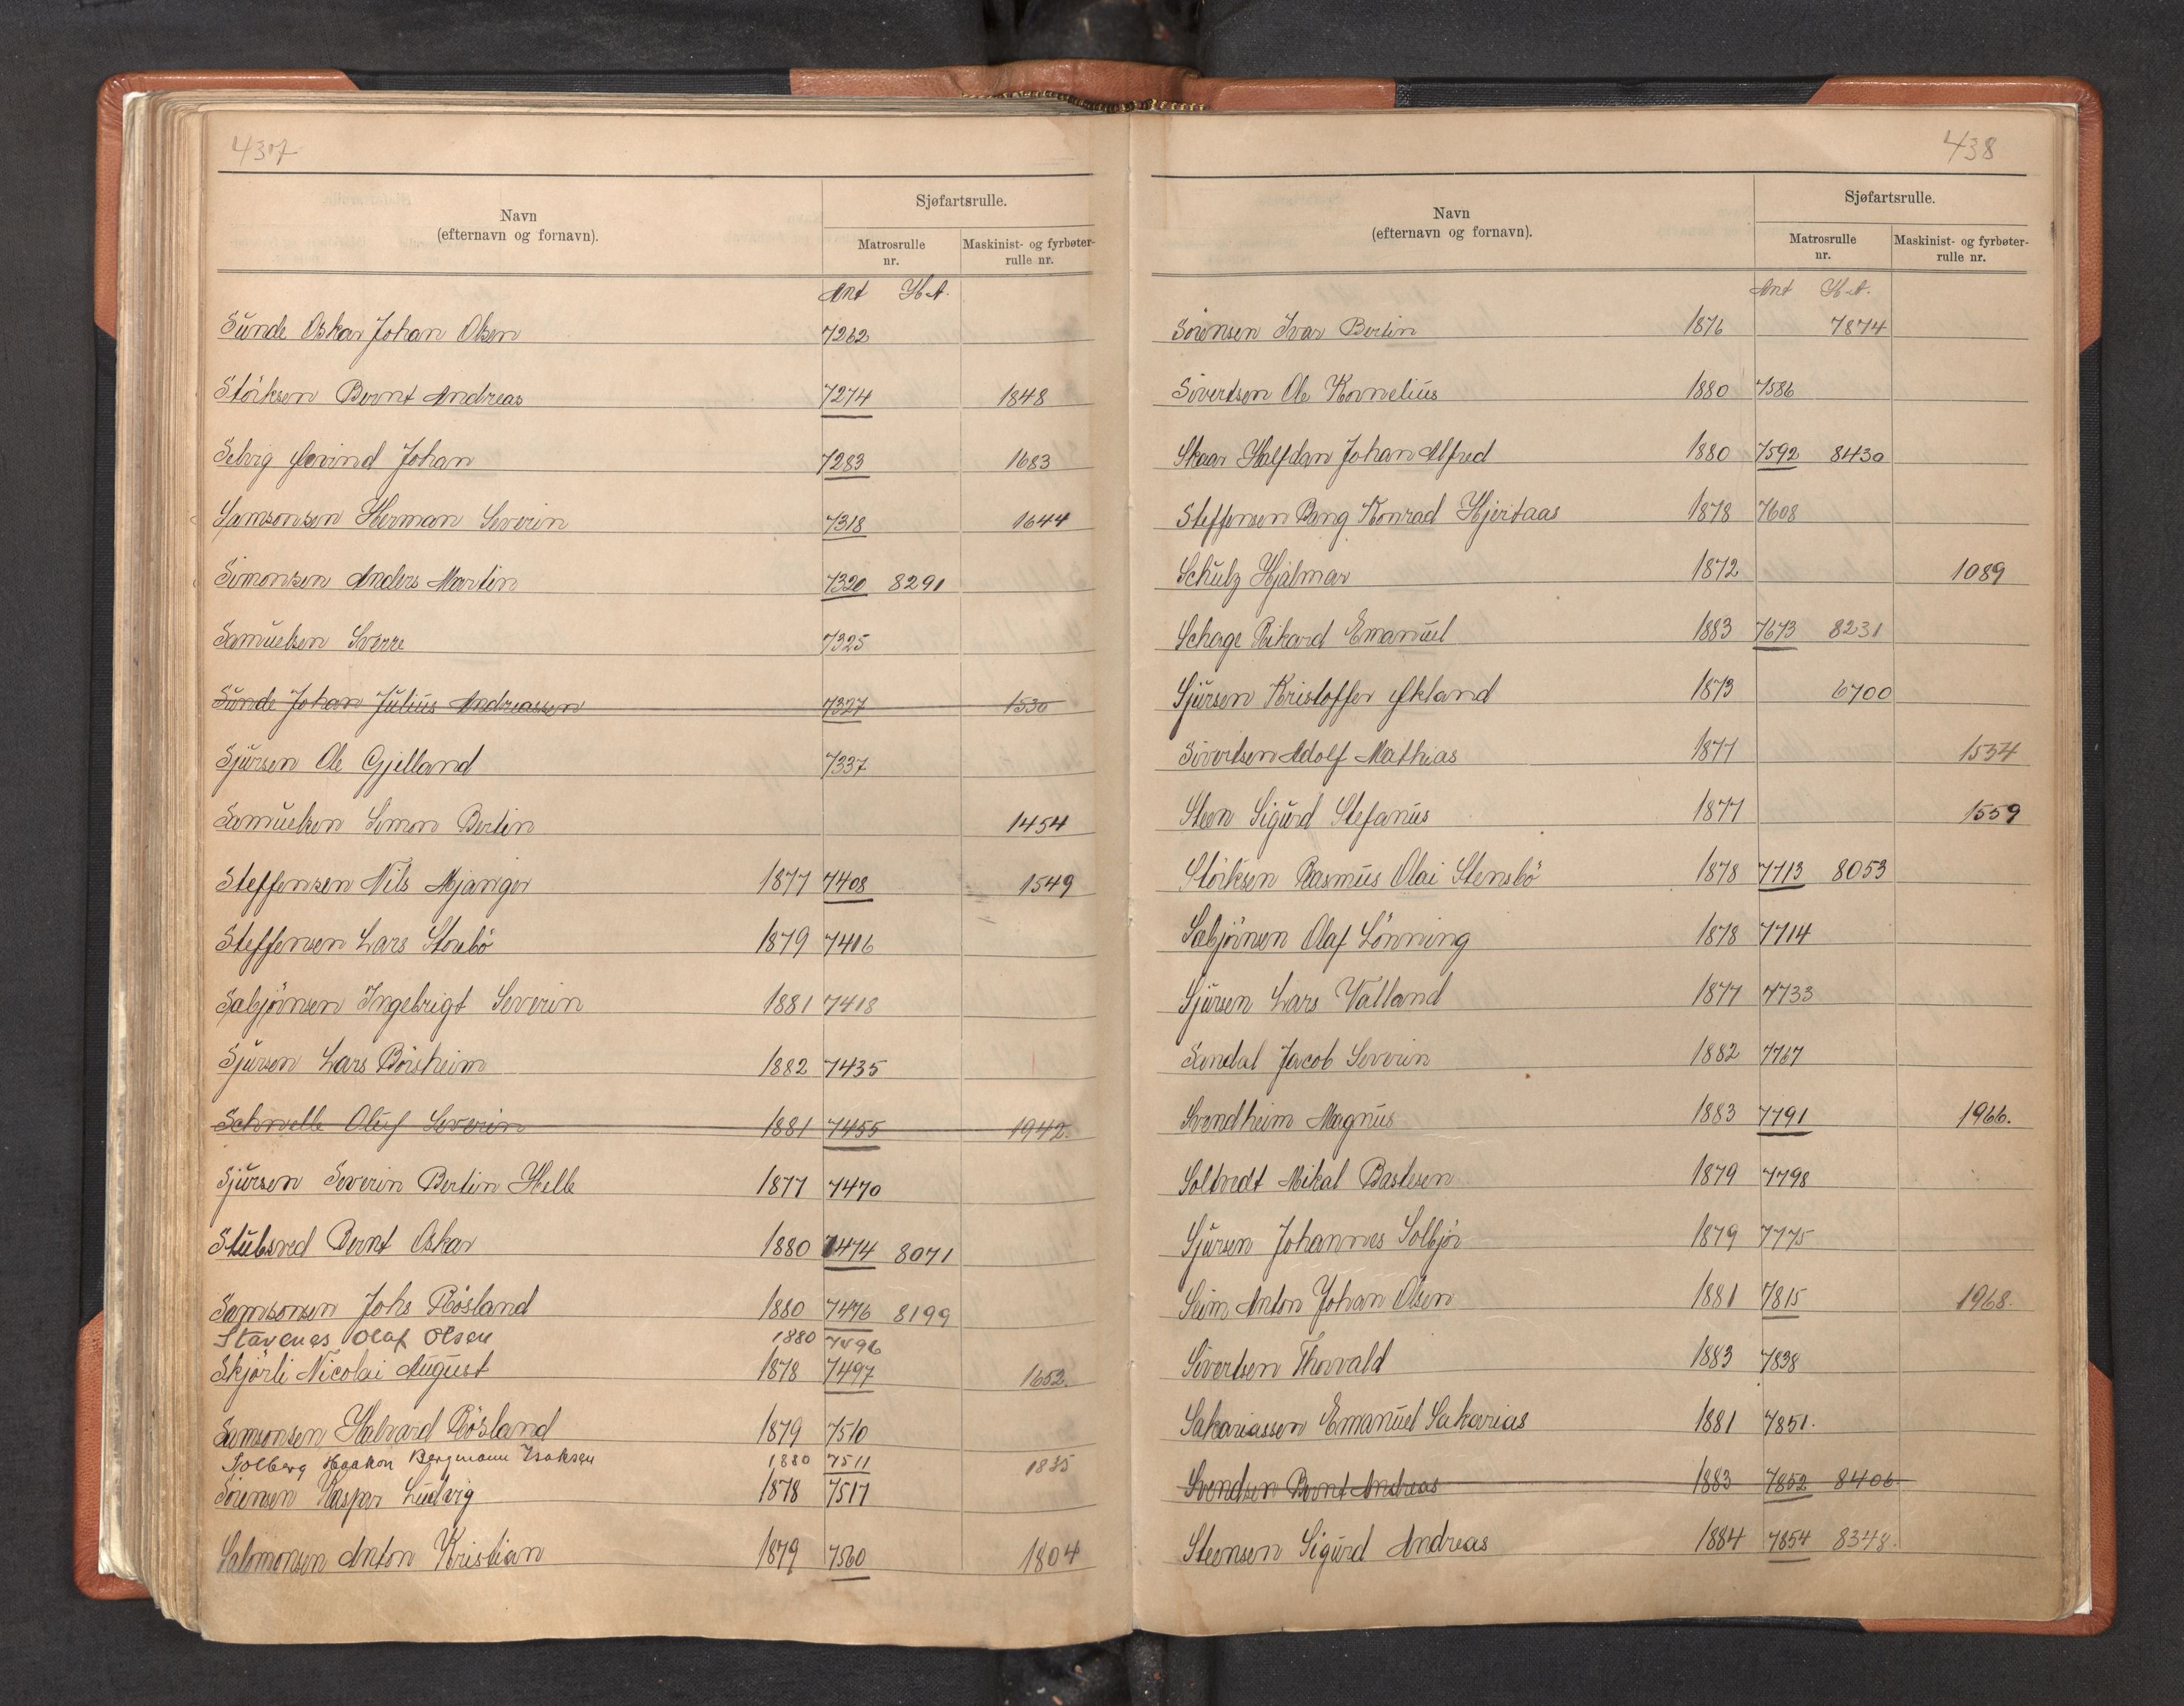 437
Navn
(efternavn og fornavn).
Sjøfartsrulle.
Matrosrulle nr.
Maskinist- og fyrbøter-rulle nr.
Ant H.A.
Sunde Oskar Johan Olsen 7262
Störksen Bernt Andreas 7274 1848
Selvig Øevind Johan 7283 1683
Samsonsen Herman Severin 7318 1644
Simonsen Anders Martin 7320 8291
Samuelsen Sverre 7325
Sunde Johan Julius Andreassen 7327 1530
Sjursen Ole Gjelland 7337
Samuelsen Simon Bertin 1454
Steffensen Nils Mjanger 1877 7408 1549
Steffensen Lars Storebö 1879 7416
Sæbjörnsen Ingebrigt Severin 1881 7418
Sjursen Lars Börsheim 1882 7435
Schnelle Oluf Severin 1881 7455 1942.
Sjursen Severin Bertin Helle 1877 7470
Stubsved Bernt Oskar 1880 7474 8071
Samsonsen Johs Rösland 1880 7476 8199
Stavenes Olaf Olsen 1880 7496
Skjörli Nicolai August 1878 7497 1652.
Samsonsen Halvard Rösland 1879 7510
Solberg Haakon Bergmann Isaksen 1880 7511 1835
Sörensen Kaspar Ludvig 1878 7517
Salomonsen Anton Kristian 1879 7560 1804
438
Navn
(efternavn og fornavn).
Sjøfartsrulle.
Matrosrulle nr.
Maskinist- og fyrbøter-rulle nr.
Ant H.A.
Sörensen Ivar Bertin 1876 7874
Sivertsen Ole Kornelius 1880 7586
Skaar Halfdan Johan Alfred 1880 7592 8430
Steffensen Bang Konrad Hjertaas 1878 7608
Schulz Hjalmar 1872 1089
Schage Rikard Emanuel 1883 7673 8231
Sjursen Kristoffer Økland 1873 6700
Sivertsen Adolf Mathias 1877 1534
Steen Sigurd Stefanus 1877 1559
Störksen Rasmus Olai Stensbö 1878 7713 8053
Sæbjörnsen Olaf Lönning 1878 7714
Sjursen Lars Valland 1877 7733
Sandal Jacob Severin 1882 7767
Svendheim Magnus 1883 7791 1966.
Soltvedt Mikal Bastesen 1879 7798
Sjursen Johannes Solbjör 1879 7775
Seim Anton Johan Olsen 1881 7815 1968.
Sivertsen Thorvald 1883 7838
Sakariassen Emanuel Sakarias 1881 7851.
Svendsen Bernt Andreas 1883 7852 8406
Steensen Sigurd Andreas 1884 7854 8348.